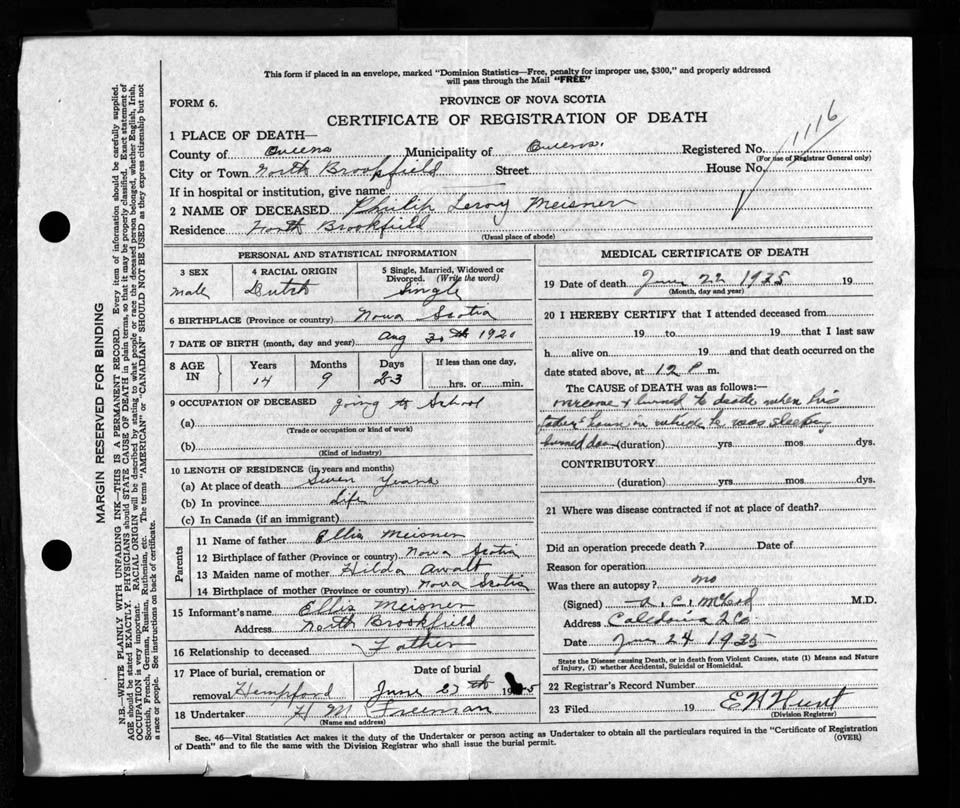 This form if placed in an envelope, marked "Dominion Statistics—Free, penalty for improper use, $300," and properly addressed
will pass through the Mail "FREE"
FORM 6.
PROVINCE OF NOVA SCOTIA
CERTIFICATE OF REGISTRATION OF DEATH
1116
1 PLACE OF DEATH—
County of Queens Municipality of Queens. Registered No.
(For use of Registrar General only)
City or Town North Brookfield Street House No.
If in hospital or institution, give name
2 NAME OF DECEASED Philip Leroy Meisner
Residence North Brookfield
(Usual place of abode)
PERSONAL AND STATISTICAL INFORMATION
3 SEX 4 RACIAL ORIGIN 5 Single, Married, Widowed or Divorced. (Write the word)
Male Dutch Single
6 BIRTHPLACE (Province or country) Nova Scotia
7 DATE OF BIRTH (month, day and year) Aug 30th 1920
8 AGE IN Years Months Days If less than one day,
14 9 23 hrs. or min.
9 OCCUPATION OF DECEASED going to School
(a)
(Trade or occupation or kind of work)
(b)
(Kind of industry)
10 LENGTH OF RESIDENCE (in years and months)
(a) At place of death Seven Years
(b) In province Life
(c) In Canada (if an immigrant)
Parents
11 Name of father Ellis Meisner
12 Birthplace of father (Province or country) Nova Scotia
13 Maiden name of mother Hilda Awalt
14 Birthplace of mother (Province or country) Nova Scotia
15 Informant's name Ellis Meisner
Address North Brookfield
16 Relationship to deceased Father
17 Place of burial, cremation or Date of burial
removal Hempford June 27th 19 5
18 Undertaker H M Freeman
(Name and address)
MEDICAL CERTIFICATE OF DEATH
19 Date of death June 22 1935 19
(Month, day and year)
20 I HEREBY CERTIFY that I attended deceased from
19 to 19 that I last saw
h alive on 19 and that death occurred on the
date stated above, at 12 P m.
The CAUSE of DEATH was as follows:—
& burned to death when his
father's house in which he was sleeping
burned down (duration) yrs. mos. dys.
CONTRIBUTORY
(duration) yrs. mos. dys.
21 Where was disease contracted if not at place of death?
Did an operation precede death? Date of
Reason for operation
Was there an autopsy? no
(Signed) C. McLeod M.D.
Address Caledonia
Date June 24 1935
State the Disease causing Death, or in death from Violent Causes, state (1) Means and Nature
of Injury, (2) whether Accidental, Suicidal or Homicidal.
22 Registrar's Record Number
23 Filed 19 E H Hunt
(Division Registrar)
Sec. 46—Vital Statistics Act makes it the duty of the Undertaker or person acting as Undertaker to obtain all the particulars required in the "Certificate of Registration
of Death" and to file the same with the Division Registrar who shall issue the burial permit. (OVER)
MARGIN RESERVED FOR BINDING
N.B.—WRITE PLAINLY WITH UNFADING INK—THIS IS A PERMANENT RECORD. Every item of information should be carefully supplied.
AGE should be stated EXACTLY. PHYSICIANS should STATE CAUSE OF DEATH in plain terms, so that it may be properly classified. Exact statement of
OCCUPATION is very important. RACIAL ORIGIN will be described by stating to what people or race the deceased person belonged, whether English, Irish,
Scottish, French, German, Russian, Ruthenian, etc. The terms "AMERICAN" or "CANADIAN" SHOULD NOT BE USED as they express citizenship but not
a race or people. See instructions on back of certificate.